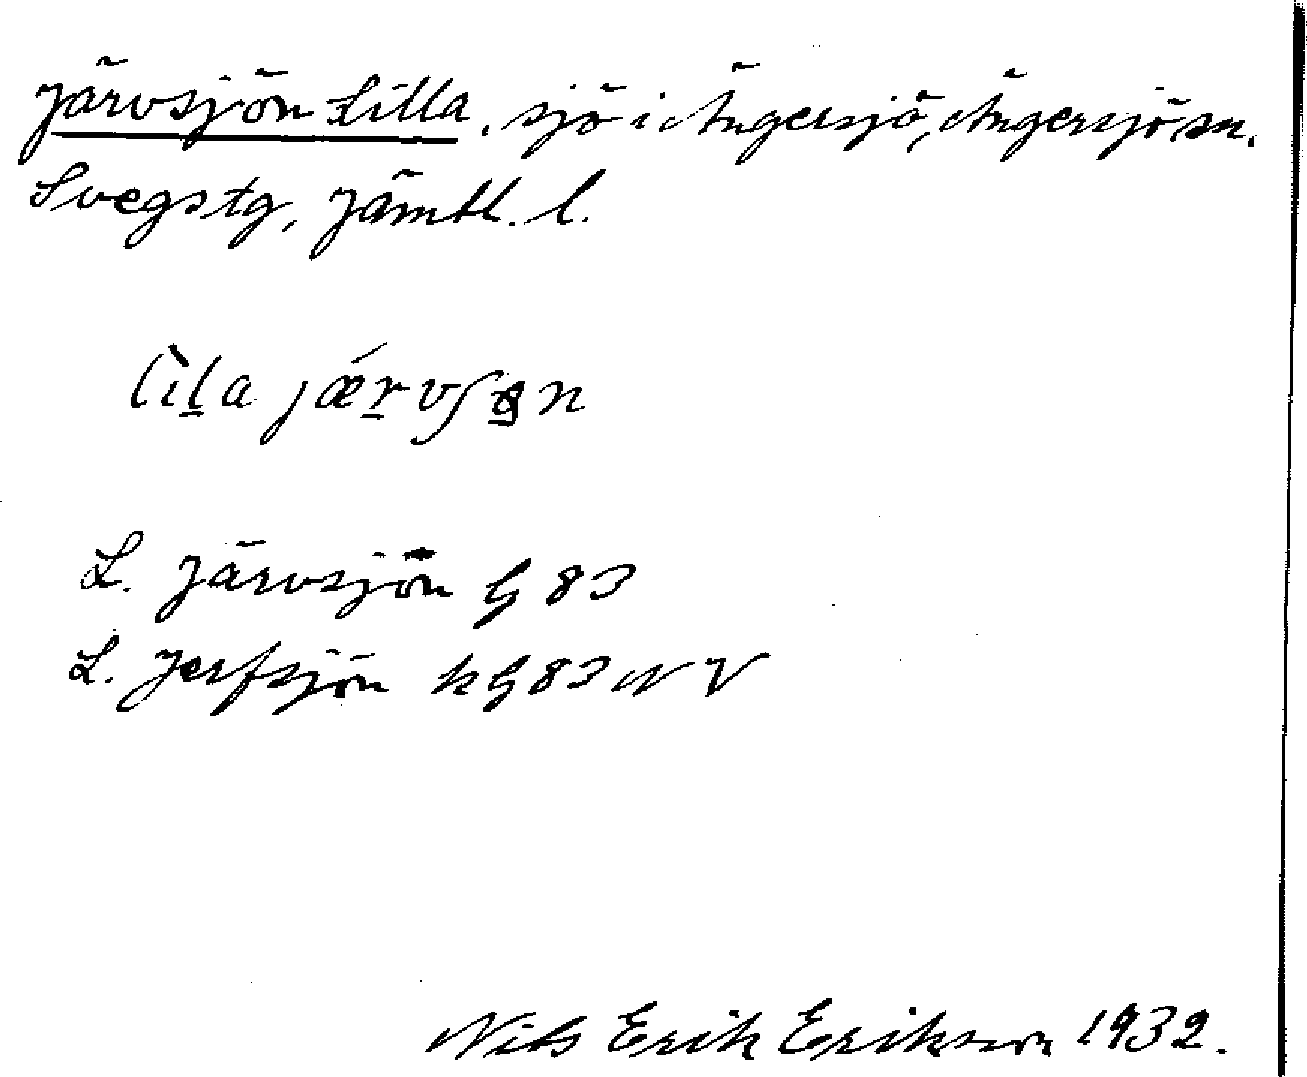 Järvsjön Lilla, sjö i Ängersjö, Ängersjö sn.
Svegs tg, Jämtl. l.
lìla jǽrvʃøn
L. Järvsjön G 83
L. Jerfsjön k G 83 NV
Nils Erik Erikson 1932.